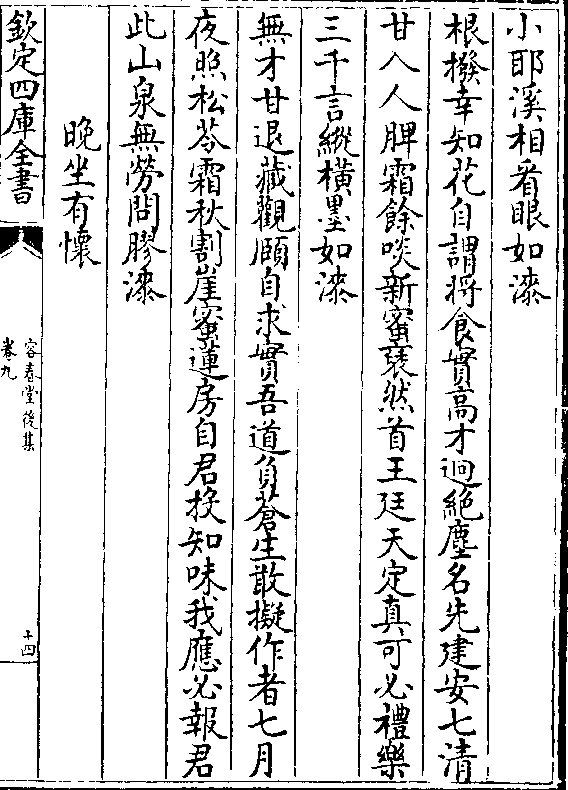 小耶溪相看眼如漆
根撥幸知花自謂將食實高才迥絶塵名先建安七清
甘入人脾霜餘啖新蜜褎然首王廷天定真可必禮樂
三千言縱横墨如漆
無才甘退藏觀頤自求實吾道負蒼生敢擬作者七月
夜照松苓霜秋割崖蜜蓮房自君投知味我應必報君
此山泉無勞問膠漆
晚坐有懷
欽定四庫全書
容春堂後集
卷九
十四